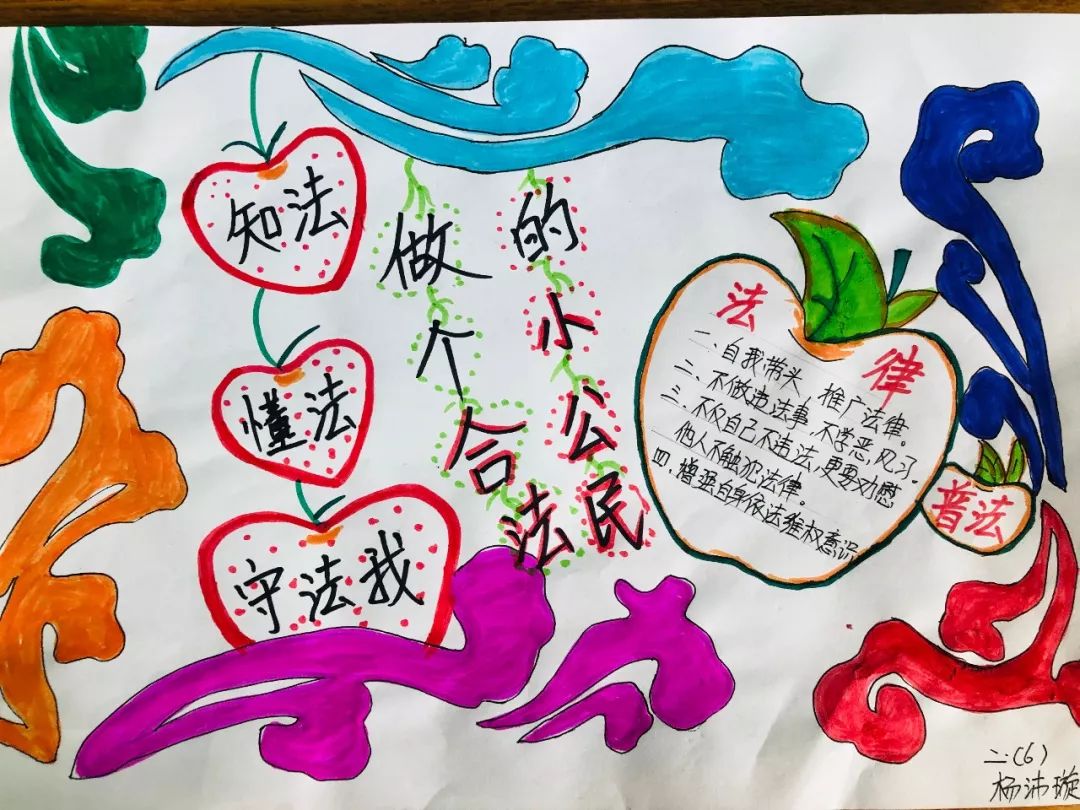 知法
懂法
守法我
做个合法
的小公民
法律
一、自我带头，推广法律。
二、不做违法事，不学恶风习。
三、不仅自己不违法，更要劝慰
他人不触犯法律。
四、增强自身依法维权意识
普法
二（6）
杨沛璇